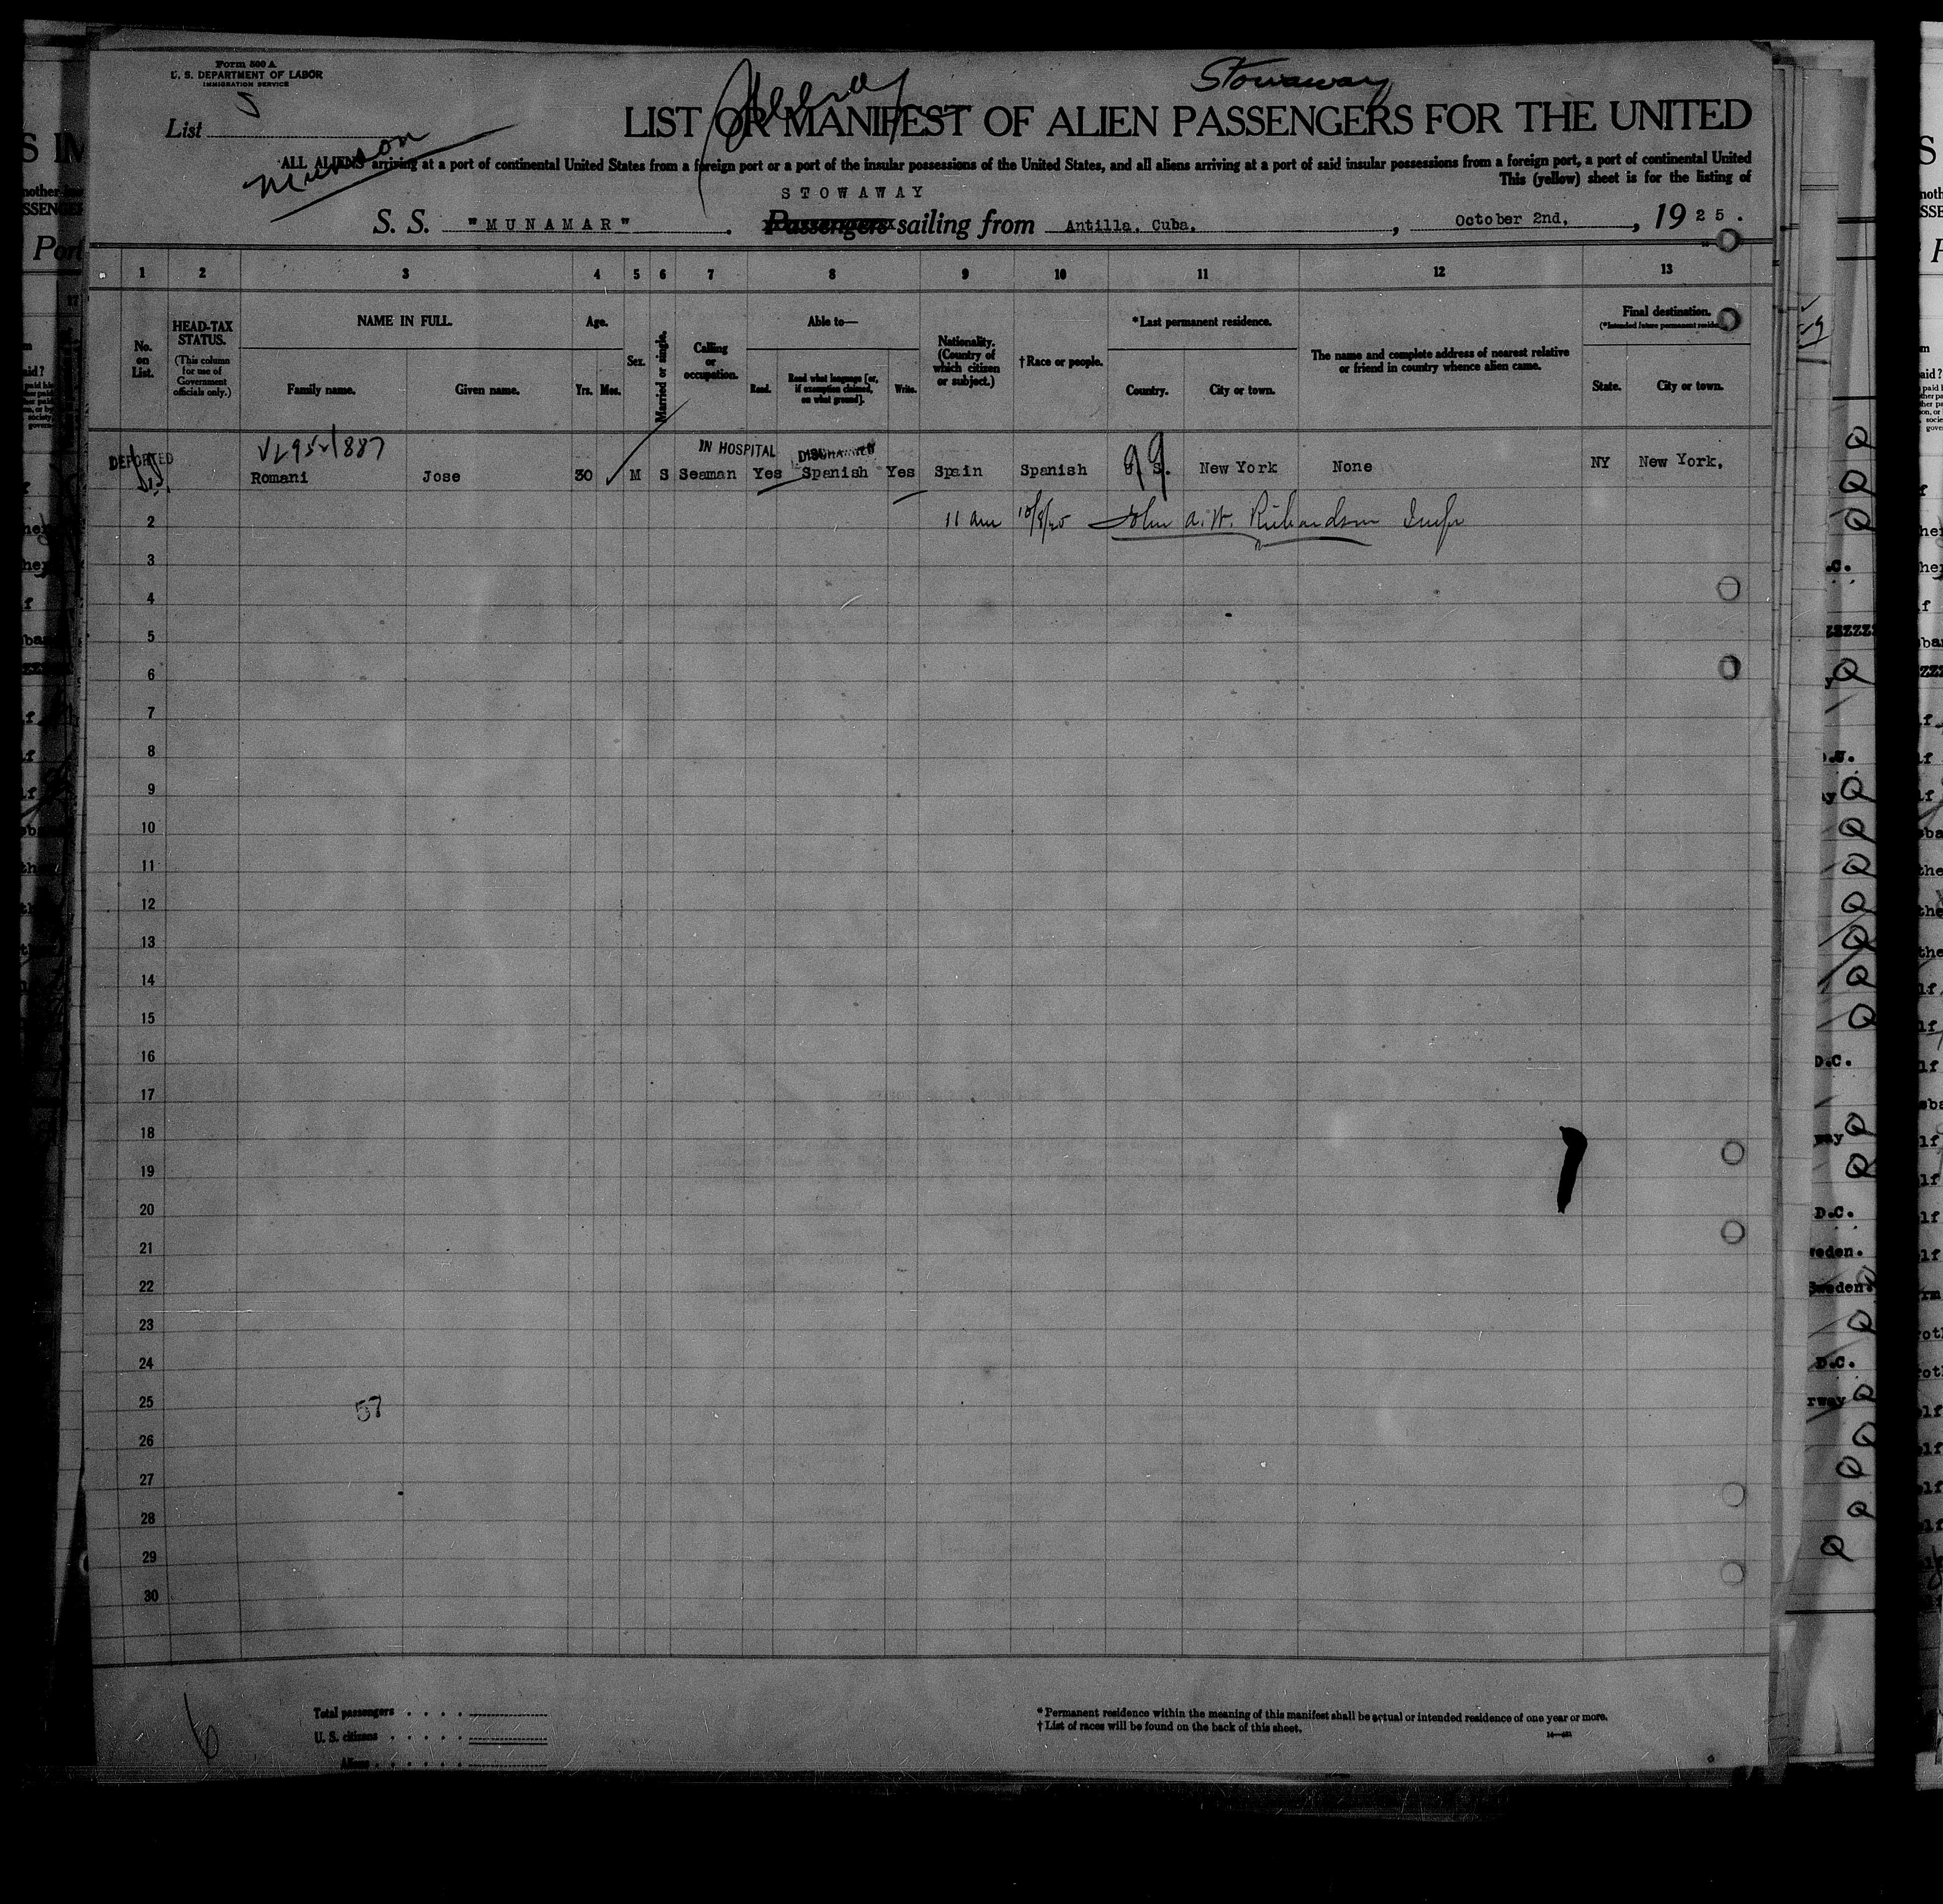 Form 500 A
U. S. DEPARTMENT OF LABOR
IMMIGRATION SERVICE
Stowaway
List 5
LIST OR MANIFEST OF ALIEN PASSENGERS FOR THE UNITED
Munson
ALL ALIENS arriving at a port of continental United States from a foreign port or a port of the insular possessions of the United States, and all aliens arriving at a port of said insular possessions from a foreign port, a port of continental United
This (yellow) sheet is for the listing of
STOWAWAY
S. S. "MUNAMAR" . Passengers sailing from Antilla, Cuba, , October 2nd, , 1925.
1 2 3 4 5 6 7 8 9 10 11 12 13
No. on List.
HEAD-TAX STATUS.
(This column for use of Government officials only.)
NAME IN FULL.
Family name. Given name.
Age.
Yrs. Mos.
Sex.
Married or single.
Calling or occupation.
Able to—
Read. Read what language [or, if exemption claimed, on what ground]. Write.
Nationality. (Country of which citizen or subject.)
†Race or people.
*Last permanent residence.
Country. City or town.
The name and complete address of nearest relative or friend in country whence alien came.
Final destination.
(*Intended future permanent residence)
State. City or town.
IN HOSPITAL DISCHARGED
DEPORTED
Romani Jose 30 M S Seaman Yes Spanish Yes Spain Spanish New York None NY New York,
2 11 am 10/8/25 John A. W. Richardson Insp
3
4
5
6
7
8
9
10
11
12
13
14
15
16
17
18
19
20
21
22
23
24
25 57
26
27
28
29
30
6
Total passengers
U. S. citizens
Aliens
* Permanent residence within the meaning of this manifest shall be actual or intended residence of one year or more.
† List of races will be found on the back of this sheet.